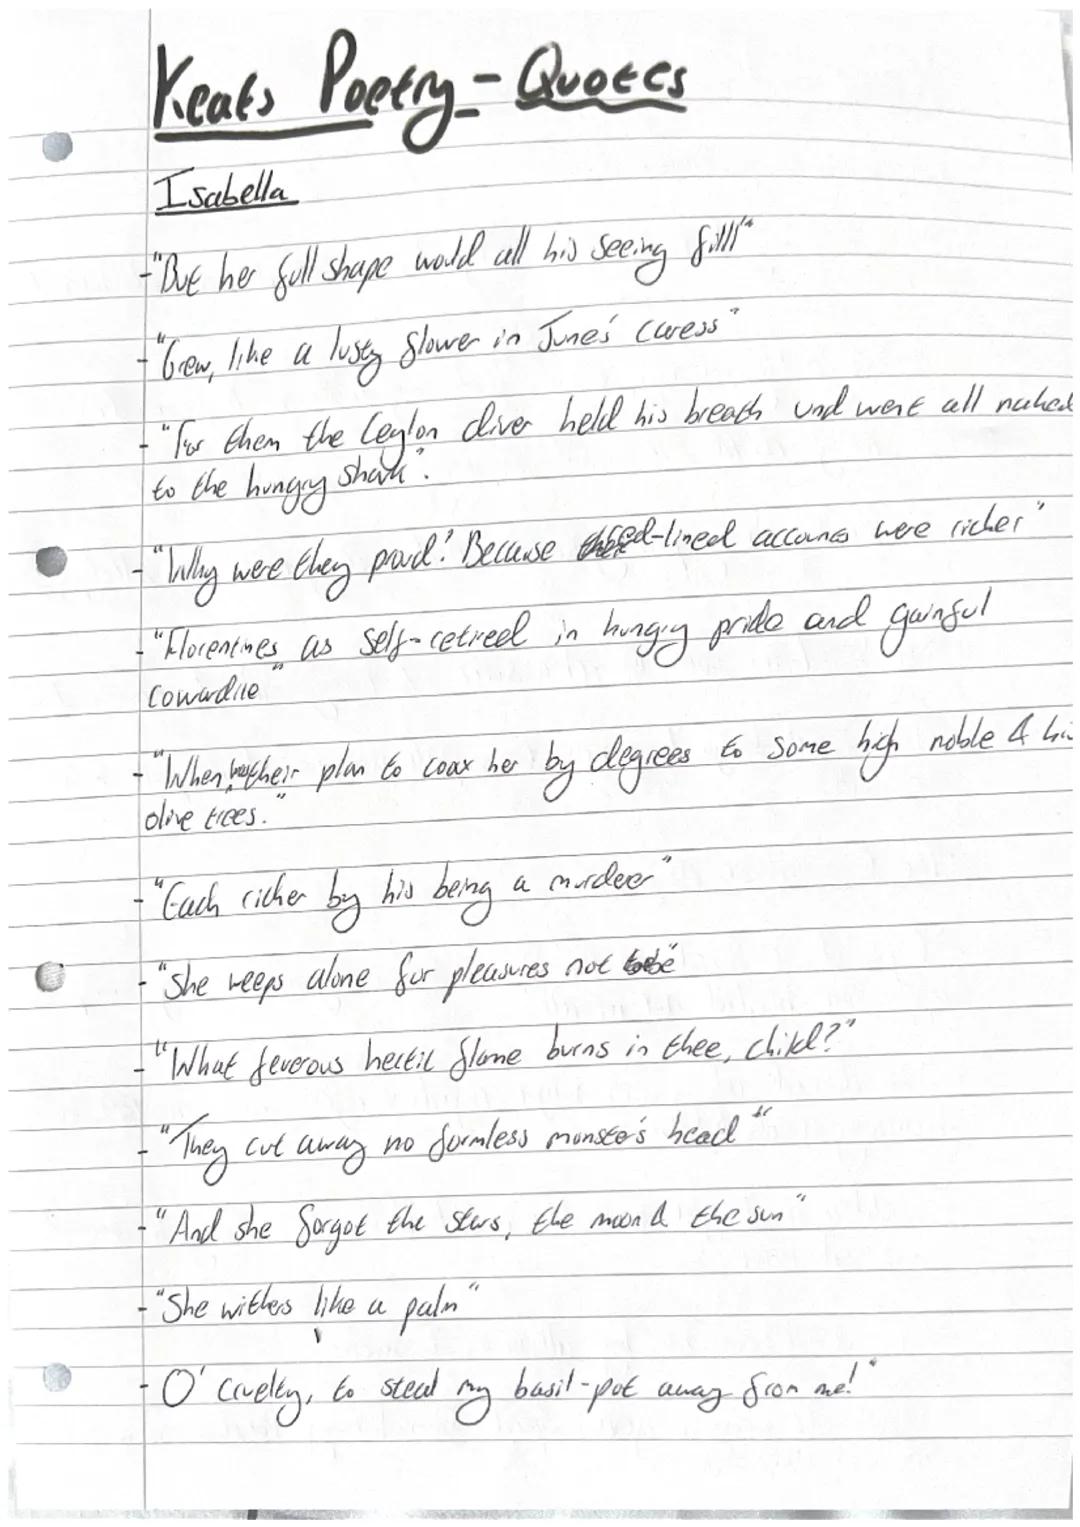 Keats Poetry - Quotes
Isabella
- "But her full shape would all his seeing fill"
- "Grew, like a lusty flower in June's caress"
- "For them the Ceylon diver held his breath and went all naked
to the hungry shark".
- "Why were they proud? Because red-lined accounts were richer"
- "Florentines as self-retired in hungry pride and gainful
cowardice"
- "When their plan to coax her by degrees to some high noble & his
olive trees."
- "Each richer by his being a murderer"
- "She weeps alone for pleasures not to be"
- "What feverous hectic flame burns in thee, child?"
- "They cut away no formless monster's head"
- "And she forgot the stars, the moon & the sun"
- "She withers like a palm"
- O' Cruelty, to steal my basil-pot away from me!"